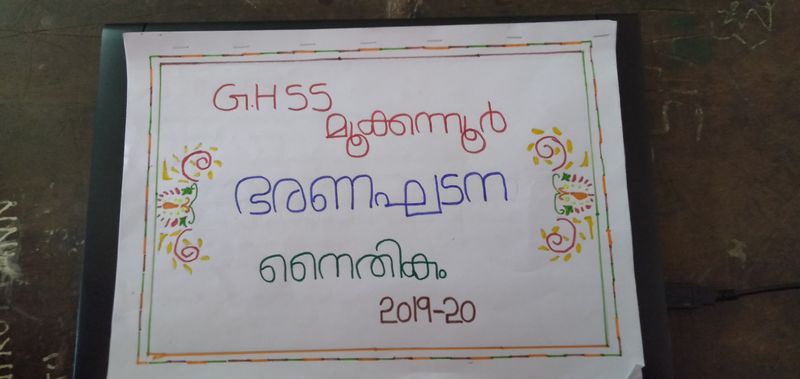 G.H SS
മൂക്കന്നൂർ
ഭരണഘടന
നൈതികം
2019-20